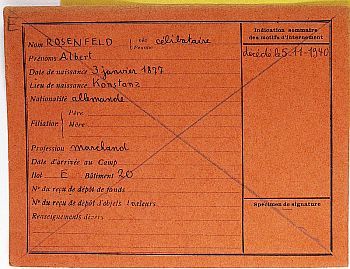 Nom ROSENFELD née / Femme célibataire
Prénoms Albert
Date de naissance 3 janvier 1877
Lieu de naissance Konstanz
Nationalité allemande
Filiation Père
Mère
Profession marchand
Date d'arrivée au Camp
Ilot E Bâtiment 20
N° du reçu de dépôt de fonds
N° du reçu de dépôt d'objets valeurs
Renseignements divers
Indication sommaire
des motifs d'internement
décédé le 5-11-1940
Spécimen de signature